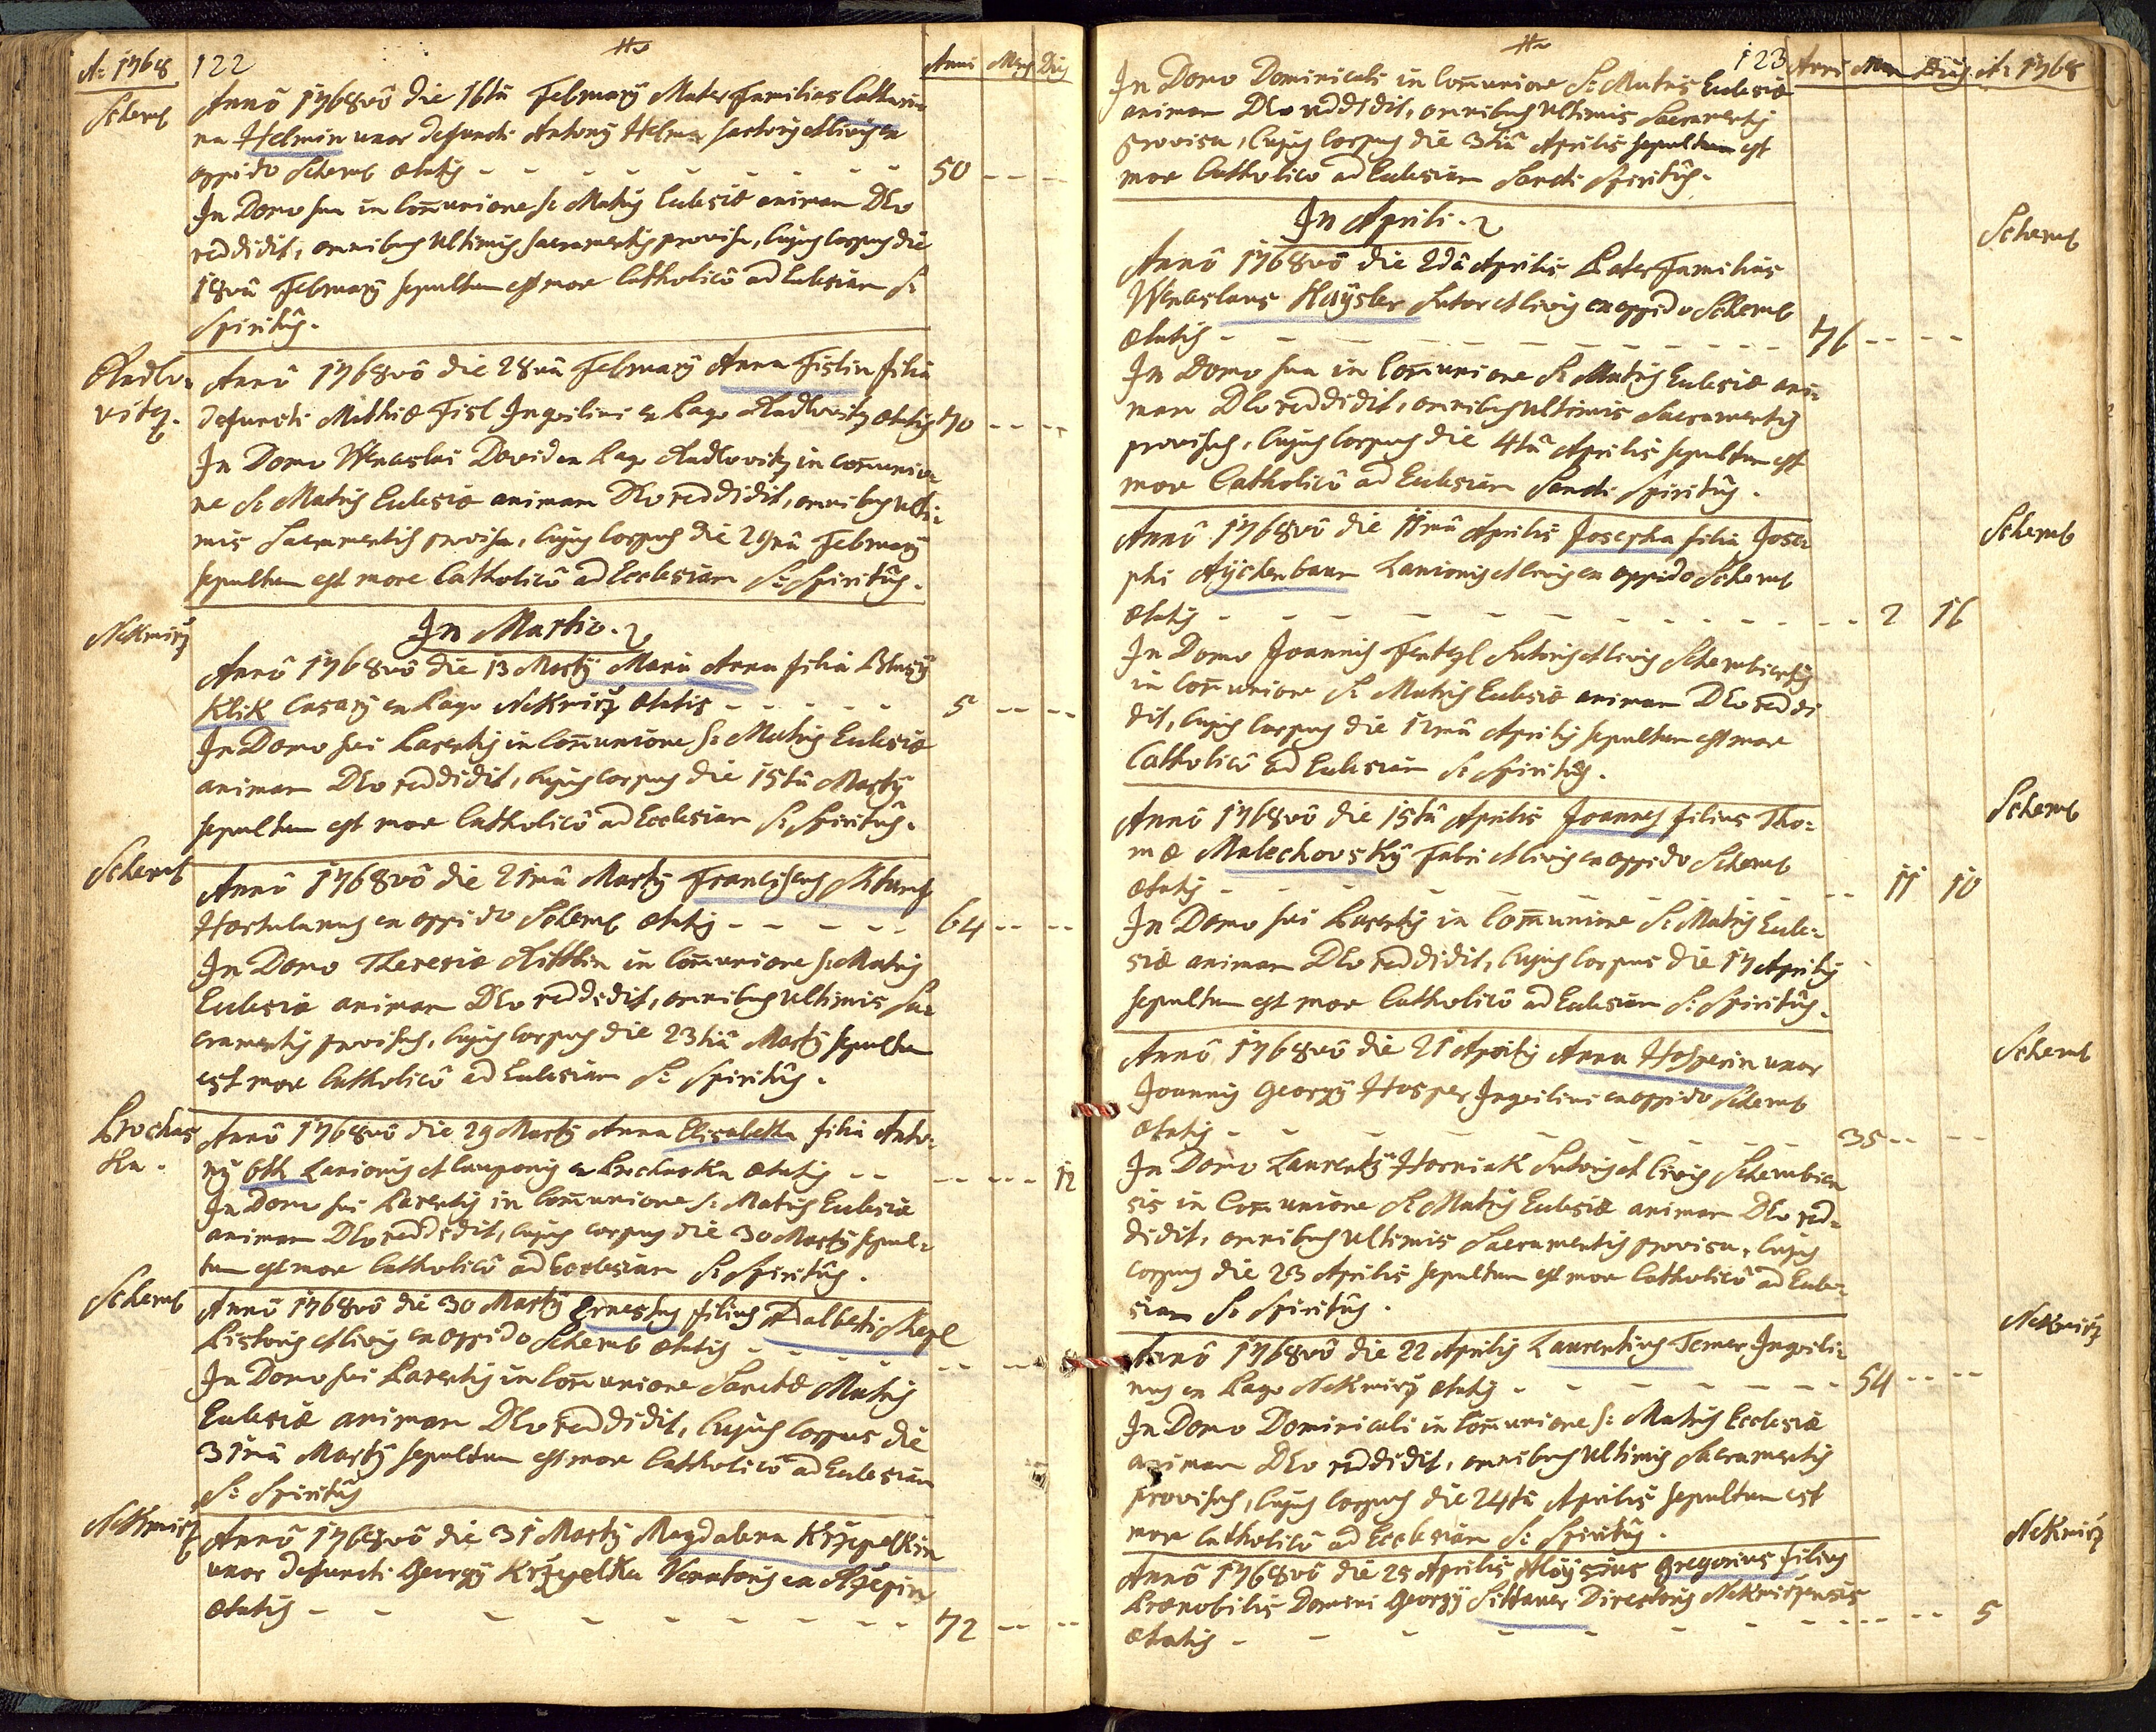 A: 1768 122 Anni Mens Dies
Schemb
Annô 1768vô die 16tâ February Mater Familias Catthari-
na Helmin uxor defuncti Antony Helm Sartoris et Civis ex
oppido Schemb ætatis - - - - - - - - 50 - - - -
In Domo sua in Com̄unione S: Matris Eclesiæ animam DEo
reddidit, omnibus Ultimis Sacramentis provisa, Cujus Corpus die
18vâ February sepultum est more Catholicô ad Eclesiam S:
Spiritûs.
Radlo-
vitz.
Annô 1768vô die 28vâ February Anna Fislin filia
defuncti Mathiæ Fisl Inquilini ex Pago Radlovitz ætatis 70 - - - -
In Domo Wenceslai David ex Pago Radlovitz in com̄unio-
ne S: Matris Eclesiæ animam DEo reddidit, omnibus Ulti-
mis Sacramentis provisa, Cujus Corpus die 29nâ February
sepultum est more Catholicô ad Ecclesiam S: Spiritûs.
Nekmirz
In Martio.
Annô 1768vô die 13 Marty Maria Anna filia Blasy
Klik Casary ex Pago Nekmirz ætatis - - - - - 5 - - - -
In Domo sui Parentis in Com̄unione S: Matris Eclesiæ
animam DEo reddidit, Cujus Corpus die 15tâ Marty
sepultum est more Catholicô ad Ecclesiam S: Spiritûs.
Schemb
Annô 1768vô die 21mâ Marty Franciscus
Hortulanus ex oppido Schemb ætatis - - - - - 64 - - - -
In Domo Theresiæ in Com̄unione S: Matris
Eclesiæ animam DEo reddidit, omnibus Ultimis Sa-
cramentis provisus, Cujus Corpus die 23tiâ Marty sepultum
est more Catholicô ad Eclesiam S: Spiritûs.
Prochas
ka.
Annô 1768vô die 29 Marty Anna Elisabetha filia Anto-
ny Ott Lanionis et Cauponis ex Prochaska ætatis - - - - - - - 12
In Domo sui Parentis in Com̄unione S: Matris Eclesiæ
animam DEo reddidit, Cujus corpus die 30 Marty sepul-
tum est more Catholicô ad Ecclesiam S: Spiritûs.
Schemb
Annô 1768vô die 30 Marty Ernestus filius Adalberti
Pistoris et Civis ex oppido Schemb ætatis - - - - - - - - -
In Domo sui Parentis in Com̄unione Sanctæ Matris
Eclesiæ animam DEo reddidit, Cujus Corpus die
31mâ Marty sepultum est more Catholicô ad Eclesiam
S: Spiritûs
Nekmirz
Annô 1768vô die 31 Marty Magdalena Krzepelkin
uxor defuncti Georgy Krzepelka Venatoris ex
ætatis - - - - - - - - 72 - - - -
123 Anni Men Dies A: 1768
In Domo Dominicali in Com̄unione S: Matris Eclesiæ
animam DEo reddidit, omnibus Ultimis Sacramentis
provisa, Cujus Corpus die 3tiâ Aprilis sepultum est
more Catholicô ad Eclesiam Sancti Spiritûs.
In Aprili.
Schemb
Annô 1768vô die 2dâ Aprilis Pater Familias
Wenceslaus Haysler Sutor et Civis ex oppido Schemb
ætatis - - - - - - - - - - - 76 - - - -
In Domo sua in Com̄unione S: Matris Eclesiæ ani-
mam DEo reddidit, omnibus Ultimis Sacramentis
provisus, Cujus Corpus die 4tâ Aprilis sepultum est
more Catholicô ad Eclesiam Sancti Spiritûs.
Schemb
Annô 1768vô die 11mâ Aprilis Josepha filia Jose-
phi Aychenbaum Lanionis et Civis ex oppido Schemb
ætatis - - - - - - - - - - - 2 16
In Domo Joannis Fentzl Sutoris et Civis Schembientis
in Com̄unione S: Matris Eclesiæ animam DEo reddi
dit, Cujus Corpus die 12mâ Aprilis sepultum est more
Catholicô ad Eclesiam S: Spiritûs.
Schemb
Annô 1768vô die 15tâ Aprilis Joannes filius Tho-
mæ Malechovsky Fabri et Civis ex oppido Schemb
ætatis - - - - - - - - - - 11 10
In Domo sui Parentis in Com̄unione S: Matris Ecle-
siæ animam DEo reddidit, Cujus Corpus die 17 Aprilis
sepultum est more Catholicô ad Eclesiam S: Spiritûs.
Schemb
Annô 1768vô die 21 Aprilis Anna Hosperin uxor
Joannis Georgy Hosper Inquilini ex oppido Schemb
ætatis - - - - - - - - - - 35 - - - -
In Domo Laurenty Horniak Sutoris et Civis Schembien
sis in Com̄unione S: Matris Eclesiæ animam DEo red-
didit, omnibus Ultimis Sacramentis provisa, Cujus
corpus die 23 Aprilis sepultum est more Catholicô ad Ecle-
siam S: Spiritûs.
Nekmirz
Annô 1768vô die 22 Aprilis Laurentius Temer Inquili-
nus ex Pago Nekmirz ætatis - - - - - - - 54 - - - -
In Domo Dominicali in Com̄unione S: Matris Ecclesiæ
animam DEo reddidit, omnibus Ultimis Sacramentis
provisus, Cujus Corpus die 24tâ Aprilis sepultum est
more Catholicô ad Ecclesiam S: Spiritûs.
Nekmirz
Annô 1768vô die 25 Aprilis Aloysius Gregorius filius
Prænobilis Domini Georgy Sittauer Directoris Nekmirzensis
ætatis - - - - - - - - - - - 5